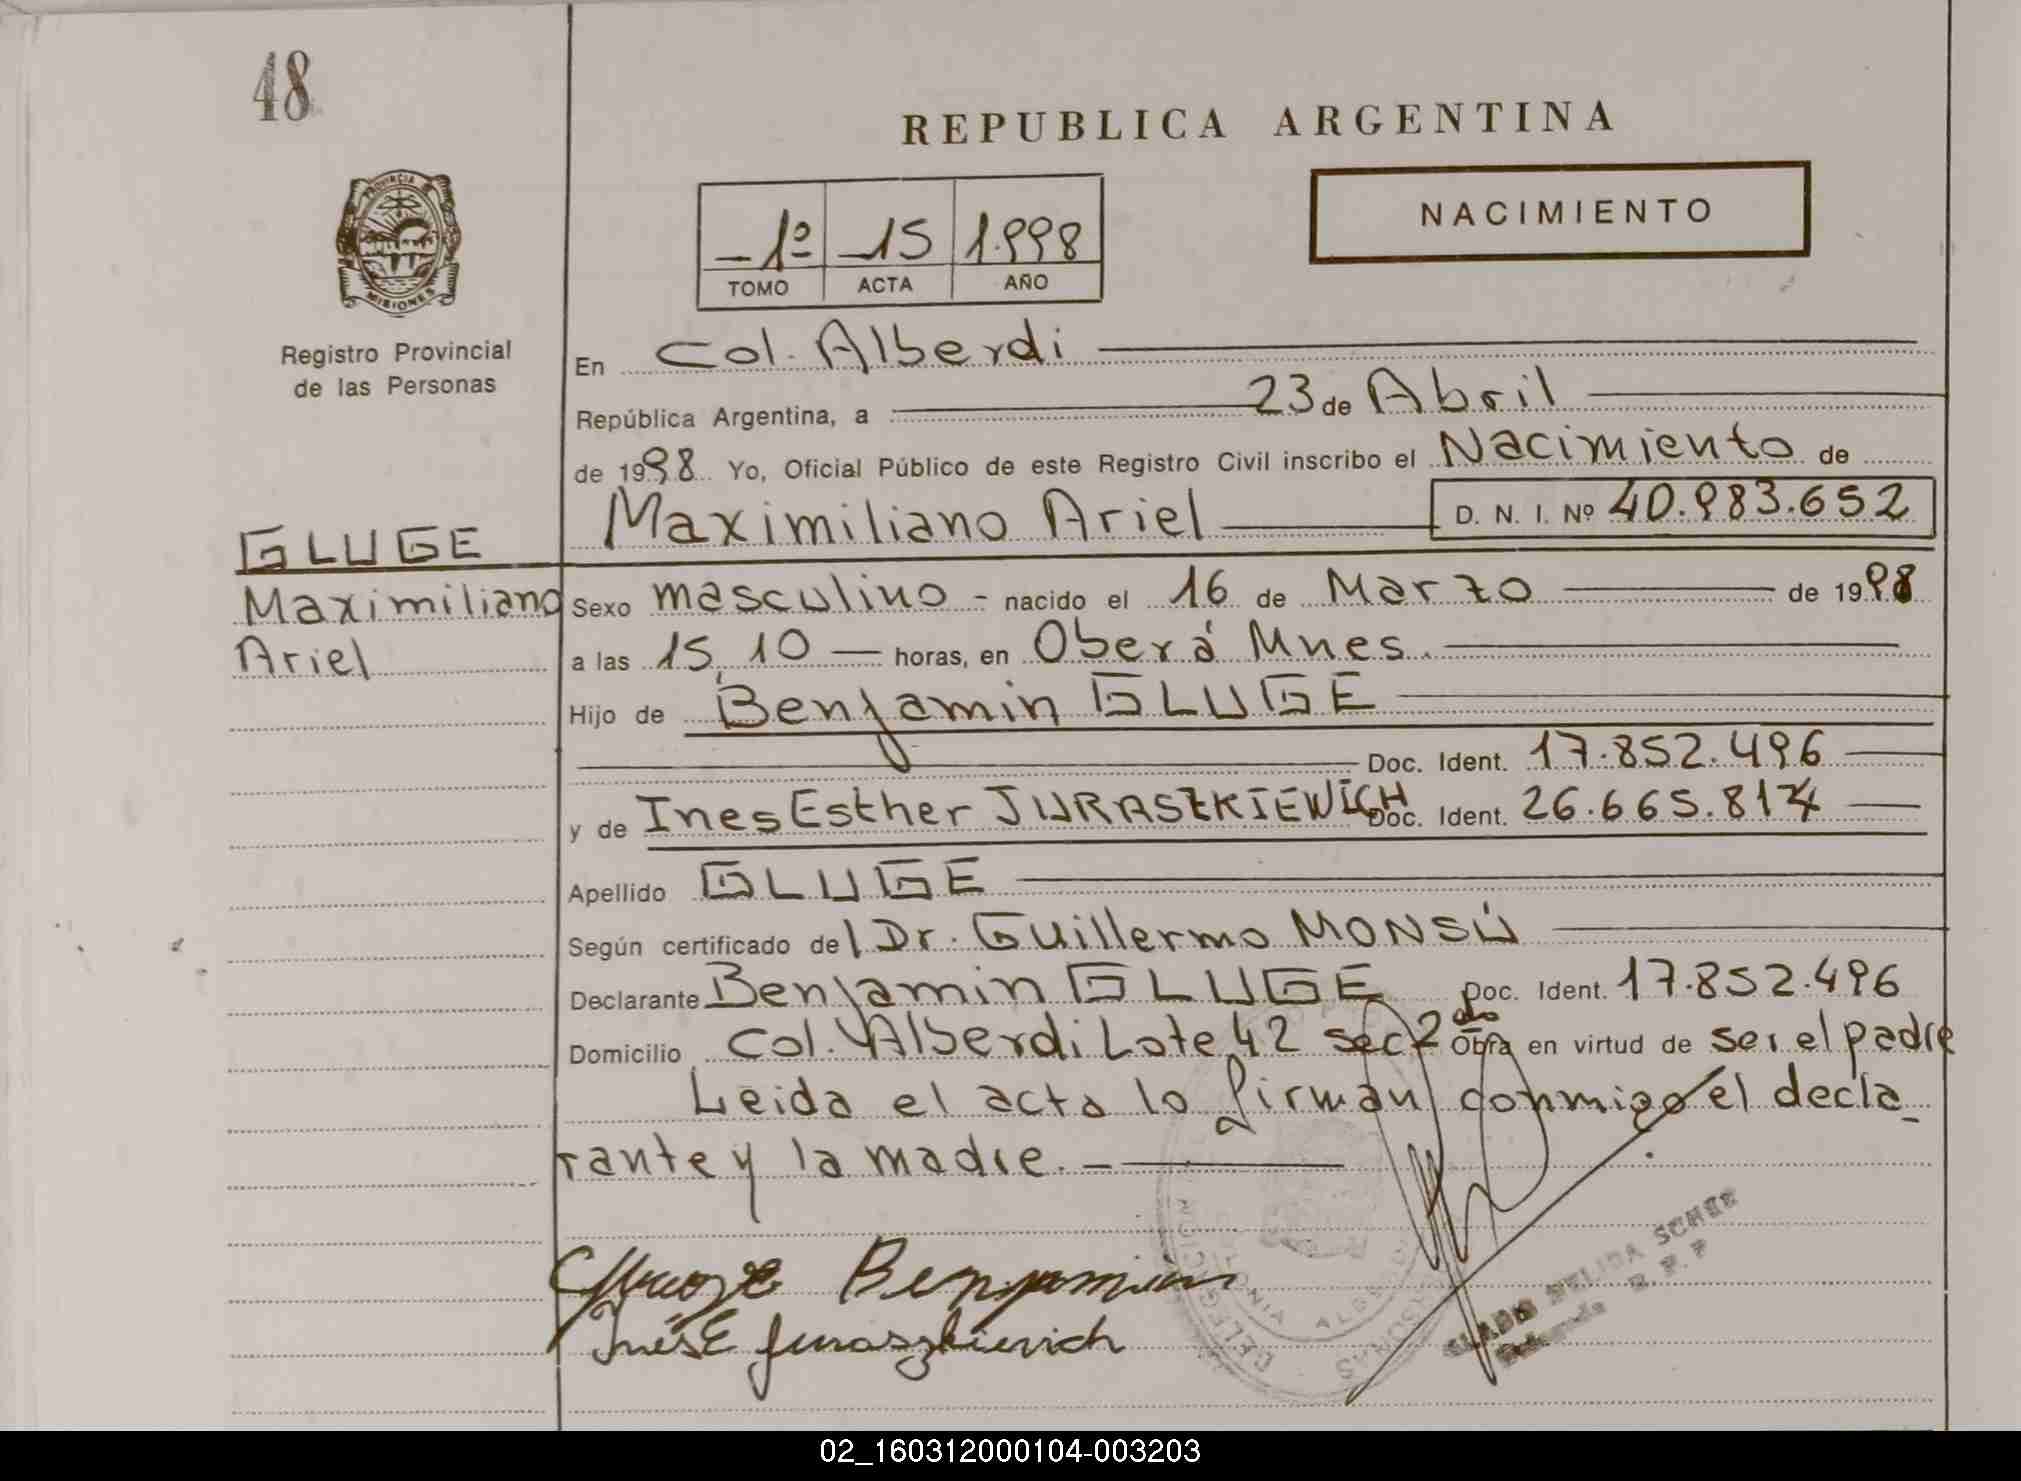 48
REPUBLICA ARGENTINA
PROVINCIA
MISIONES
Registro Provincial
de las Personas
1º 15 1.998
TOMO ACTA AÑO
NACIMIENTO
En Col. Alberdi
República Argentina, a 23 de Abril
de 1998 Yo, Oficial Público de este Registro Civil inscribo el Nacimiento de
Maximiliano Ariel D. N. I. Nº 40.983.652
GLUGE
Maximiliano
Ariel
Sexo masculino - nacido el 16 de Marzo de 1998
a las 15,10 horas, en Oberá Mnes.
Hijo de Benjamin GLUGE
Doc. Ident. 17.852.496
y de Ines Esther JURASZKIEWICH Doc. Ident. 26.665.814
Apellido GLUGE
Según certificado del Dr. Guillermo MONSÚ
Declarante Benjamin GLUGE Doc. Ident. 17.852.496
Domicilio Col. Alberdi Lote 42 sec 2do Obra en virtud de ser el padre
Leida el acta lo firman conmigo el decla_
rante y la madre. -
Benjamin
Inés E Juraszkievich
COLONIA ALBERDI
MISIONES
NELIDA
02_160312000104-003203